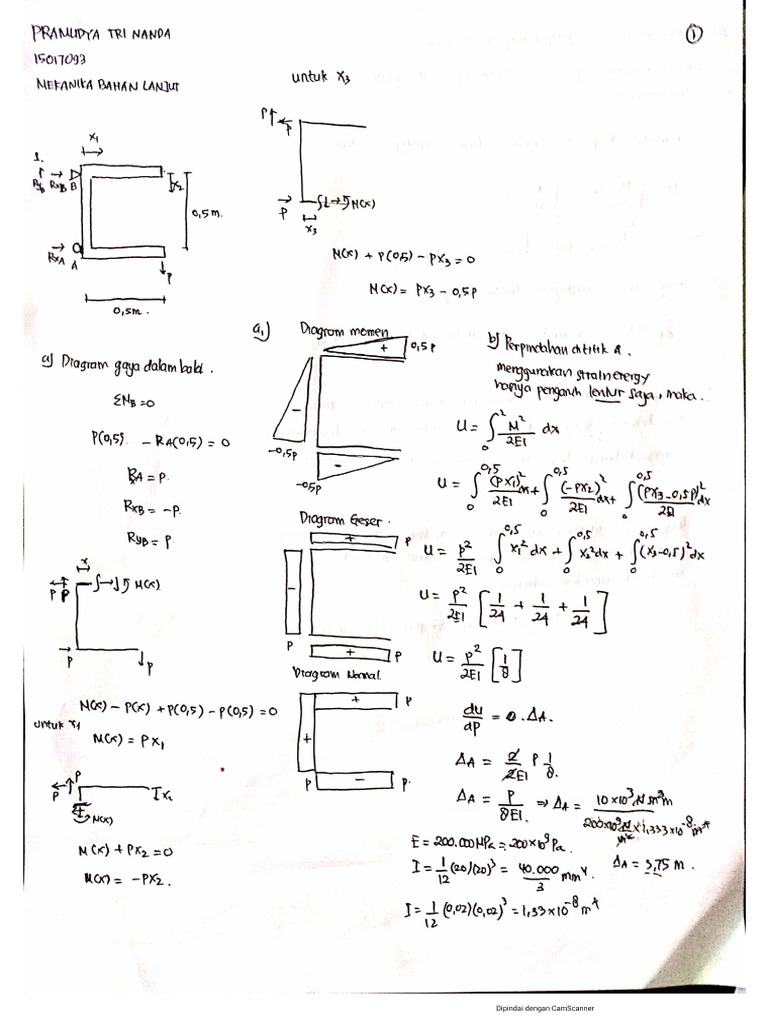 PRAMUDYA TRI NANDA
1
15017093
MEKANIKA BAHAN LANJUT
1.
x1
RyB RxB B
x2
0,5 m.
RxA
A
P
0,5 m.
untuk x3
P
P
P
M(x)
x3
M(x) + P(0,5) - Px3 = 0
M(x) = Px3 - 0,5P
a) Diagram gaya dalam balok.
ΣMB = 0
P(0,5) - RA(0,5) = 0
RA = P.
RxB = -P.
RyB = P.
x
P P
M(x)
P
P
M(x) - P(x) + P(0,5) - P(0,5) = 0
untuk x1
M(x) = Px1
P
P
x2
M(x)
M(x) + Px2 = 0
M(x) = -Px2.
a1) Diagram momen
0,5P
+
-
-0,5P
-
-0,5P
Diagram Geser.
+ P
-
P
+ P
Diagram Normal.
+ P
+
P - P.
b) Perpindahan di titik A.
menggunakan strain energy
hanya pengaruh lentur saja, maka.
U = ∫ M² / 2EI dx
U = ∫₀^0,5 (Px1)²/2EI dx + ∫₀^0,5 (-Px2)²/2EI dx + ∫₀^0,5 (Px3-0,5P)²/2EI dx
U = P²/2EI ∫₀^0,5 x1² dx + ∫₀^0,5 x2² dx + ∫₀^0,5 (x3-0,5)² dx
U = P²/2EI [1/24 + 1/24 + 1/24]
U = P²/2EI [1/8]
du/dP = 0.ΔA.
ΔA = 2/2EI P 1/8.
ΔA = P/8EI ⇒ ΔA = 10×10³ N m³ m / 200×10⁹ N/m² × 1,333×10⁻⁸ m⁴
E = 200.000 MPa = 200×10⁹ Pa.
I = 1/12 (20)(20)³ = 40.000/3 mm⁴
ΔA = 3,75 m.
I = 1/12 (0,02)(0,02)³ = 1,33×10⁻⁸ m⁴
Dipindai dengan CamScanner